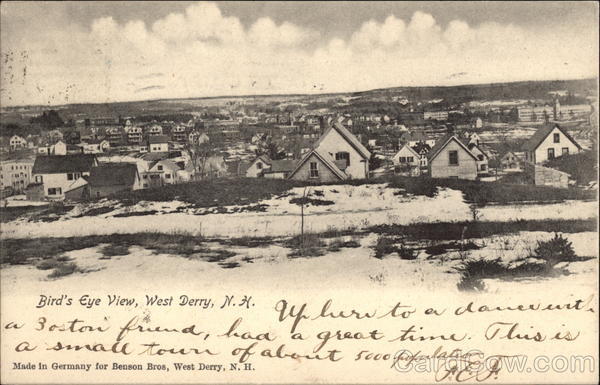 Bird's Eye View, West Derry, N.H.
Up here to a dance with
a Boston friend, had a great time. This is
a small town of about 5000 population
Made in Germany for Benson Bros, West Derry, N. H.
CardCow.com